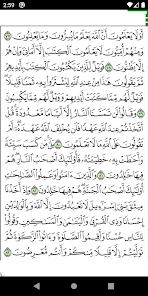 2:59
أَوَلَا يَعْلَمُونَ أَنَّ ٱللَّهَ يَعْلَمُ مَا يُسِرُّونَ وَمَا يُعْلِنُونَ ٧٧
وَمِنْهُمْ أُمِّيُّونَ لَا يَعْلَمُونَ ٱلْكِتَٰبَ إِلَّآ أَمَانِىَّ وَإِنْ هُمْ إِلَّا
يَظُنُّونَ ٧٨ فَوَيْلٌ لِّلَّذِينَ يَكْتُبُونَ ٱلْكِتَٰبَ بِأَيْدِيهِمْ
ثُمَّ يَقُولُونَ هَٰذَا مِنْ عِندِ ٱللَّهِ لِيَشْتَرُوا۟ بِهِۦ ثَمَنًا قَلِيلًا
فَوَيْلٌ لَّهُم مِّمَّا كَتَبَتْ أَيْدِيهِمْ وَوَيْلٌ لَّهُم مِّمَّا يَكْسِبُونَ
٧٩ وَقَالُوا۟ لَن تَمَسَّنَا ٱلنَّارُ إِلَّآ أَيَّامًا مَّعْدُودَةً قُلْ
أَتَّخَذْتُمْ عِندَ ٱللَّهِ عَهْدًا فَلَن يُخْلِفَ ٱللَّهُ عَهْدَهُۥٓ أَمْ
تَقُولُونَ عَلَى ٱللَّهِ مَا لَا تَعْلَمُونَ ٨٠ بَلَىٰ مَن كَسَبَ سَيِّئَةً
وَأَحَٰطَتْ بِهِۦ خَطِيٓـَٔتُهُۥ فَأُو۟لَٰٓئِكَ أَصْحَٰبُ ٱلنَّارِ هُمْ
فِيهَا خَٰلِدُونَ ٨١ وَٱلَّذِينَ ءَامَنُوا۟ وَعَمِلُوا۟ ٱلصَّٰلِحَٰتِ
أُو۟لَٰٓئِكَ أَصْحَٰبُ ٱلْجَنَّةِ هُمْ فِيهَا خَٰلِدُونَ ٨٢ وَإِذْ أَخَذْنَا
مِيثَٰقَ بَنِىٓ إِسْرَٰٓءِيلَ لَا تَعْبُدُونَ إِلَّا ٱللَّهَ وَبِٱلْوَٰلِدَيْنِ
إِحْسَانًا وَذِى ٱلْقُرْبَىٰ وَٱلْيَتَٰمَىٰ وَٱلْمَسَٰكِينِ وَقُولُوا۟
لِلنَّاسِ حُسْنًا وَأَقِيمُوا۟ ٱلصَّلَوٰةَ وَءَاتُوا۟ ٱلزَّكَوٰةَ ثُمَّ
تَوَلَّيْتُمْ إِلَّا قَلِيلًا مِّنكُمْ وَأَنتُم مُّعْرِضُونَ ٨٣